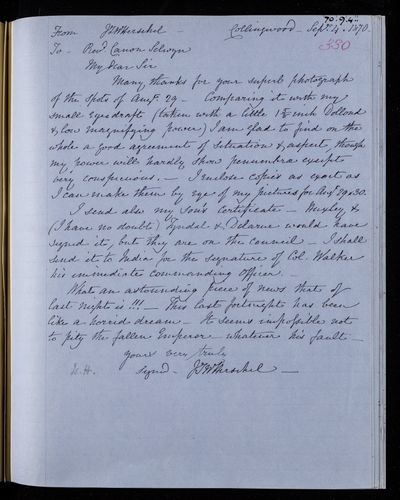 70.9.4
From JFWHerschel - Collingwood - Sepr. 4. 1870.
330
To - Revd Canon Selwyn
My Dear Sir
Many thanks for your superb photograph
of the Spots of Augt. 29 - Comparing it with my
small eyedraft (taken with a little inch Dollond
& low magnifying power) I am glad to find on the
whole a good agreement of situation & aspect, though
my power will hardly show penumbra except
very conspicuous. - I enclose copies as exact as
I can make them by eye of my pictures for Augt 29 & 30.
I send also my Son's Certificate - Huxley &
(I have no doubt) Tyndal & Delarue would have
signed it, but they are on the Council - I shall
send it to India for the signature of Col. Walker
his immediate commanding officer.
What an astounding piece of news that of
last night is!!! - This last fortnight has been
like a horrid dream - It seems impossible not
to pity the fallen Emperor whatever his fault -
yours very truly
signd - JFWHerschel -